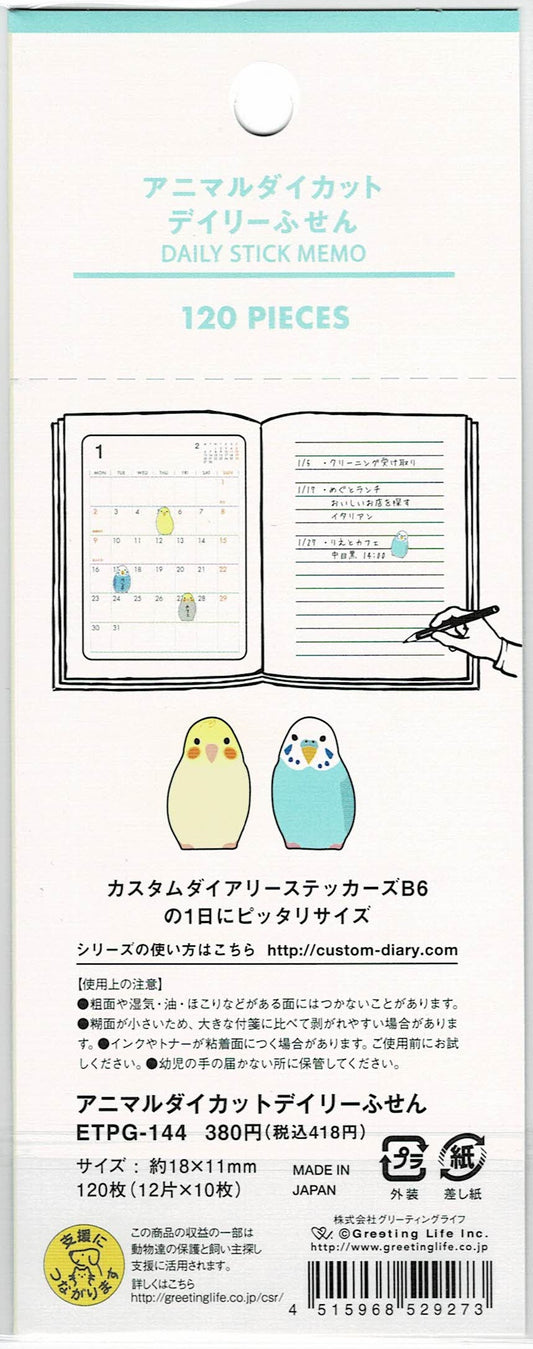 アニマルダイカット
デイリーふせん
DAILY STICK MEMO
120 PIECES
1
2
MON TUE WED THU FRI SAT SUN
1
2 3 4 5 6 7 8
9 10 11 12 13 14 15
16 17 18 19 20 21 22
23 24 25 26 27 28 29
30 31
1/5 ・クリーニング受け取り
1/17 ・めぐとランチ
おいしいお店を探す
イタリアン
1/27 ・りえとカフェ
中目黒 14:00
カスタムダイアリーステッカーズB6
の1日にピッタリサイズ
シリーズの使い方はこちら http://custom-diary.com
【使用上の注意】
●粗面や湿気・油・ほこりなどがある面にはつかないことがあります。
●糊面が小さいため、大きな付箋に比べて剥がれやすい場合がありま
す。●インクやトナーが粘着面につく場合があります。ご使用前にお試
しください。●幼児の手の届かない所に保管してください。
アニマルダイカットデイリーふせん
ETPG-144 380円(税込418円)
サイズ : 約18×11mm
120枚(12片×10枚)
MADE IN
JAPAN
プラ
外装
紙
差し紙
株式会社グリーティングライフ
©Greeting Life Inc.
http://www.greetinglife.co.jp
支援に
つながります
この商品の収益の一部は
動物達の保護と飼い主探し
支援に活用されます。
詳しくはこちら
http://greetinglife.co.jp/csr/
4 515968 529273